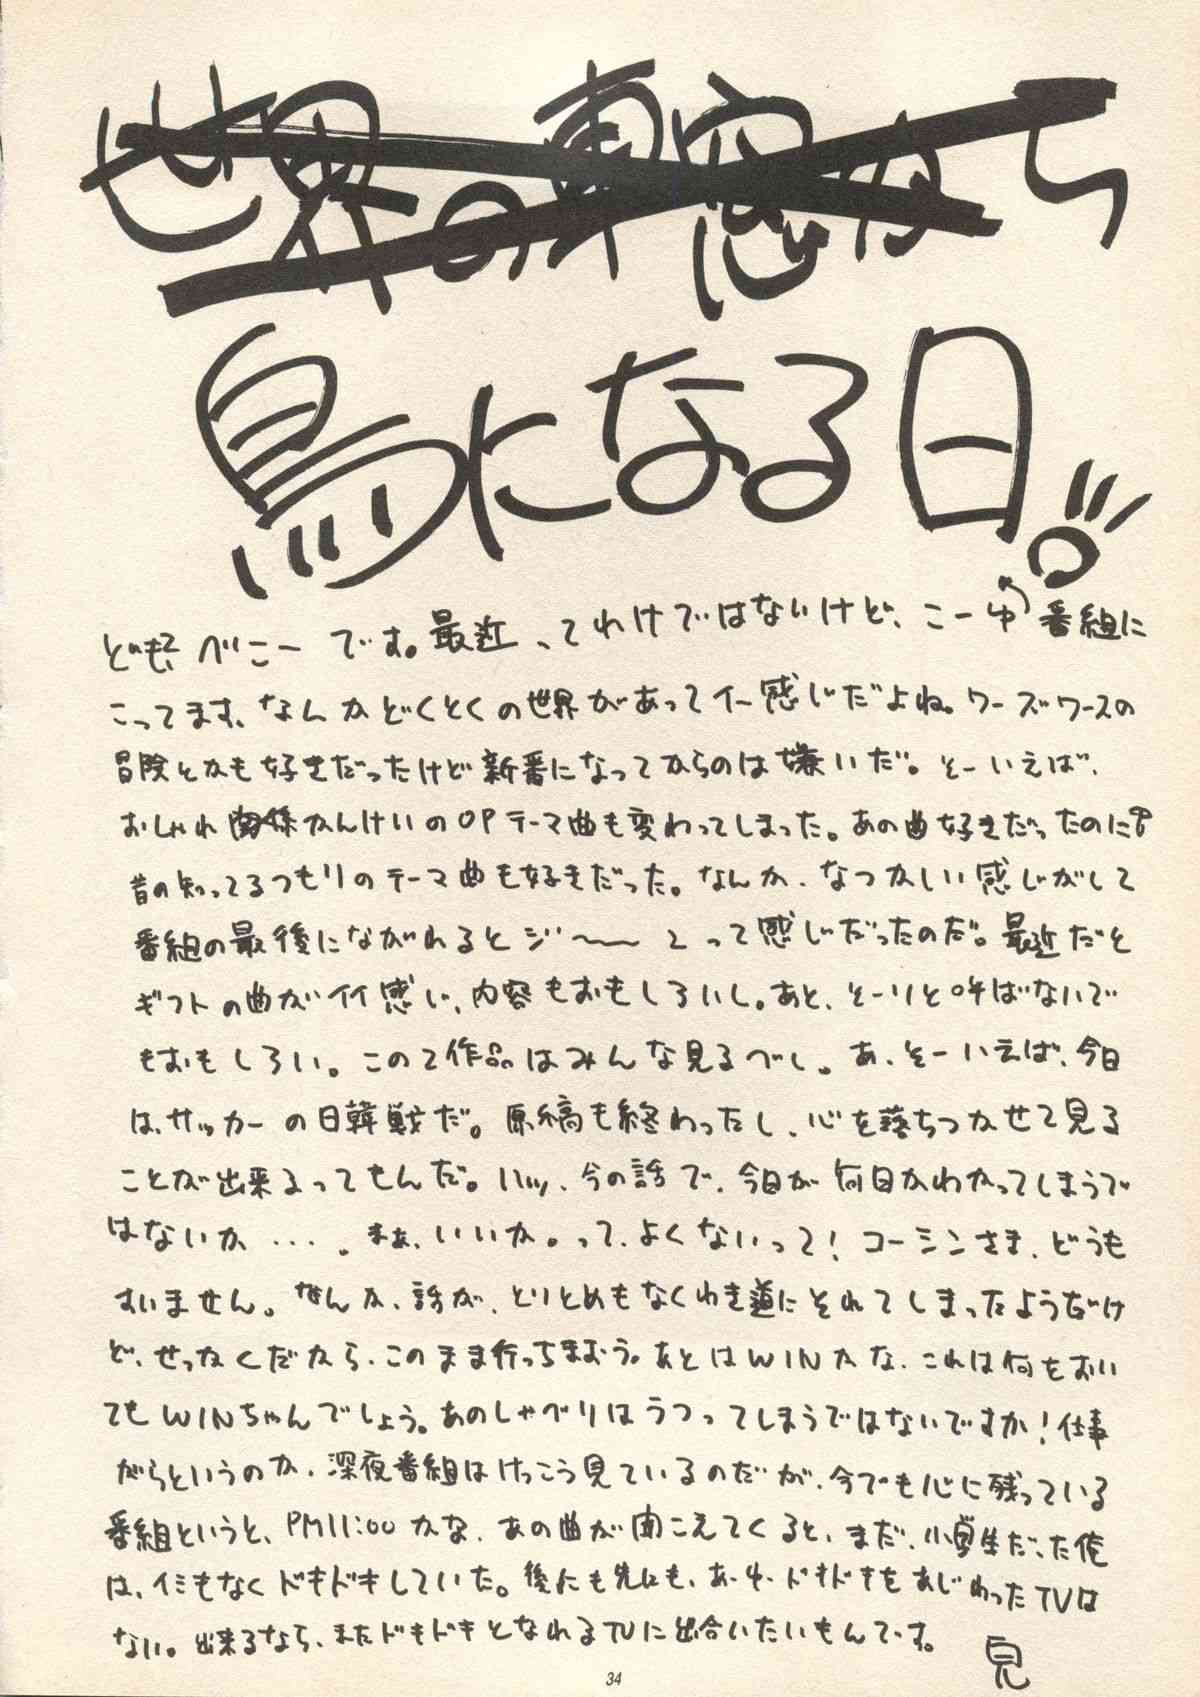 世界の車窓から
鳥になる日。
ども、べにーです。最近ってわけではないけど、こーゆ番組に
こってます、なんかどくとくの世界があってイー感じだよね。ワーズワースの
冒険とかも好きだったけど新番になってからのは嫌いだ。そーいえば、
おしゃれ関係かんけいのOPテーマ曲も変わってしまった。あの曲好きだったのに
昔の知ってるつもりのテーマ曲も好きだった。なんか、なつかしい感じがして
番組の最後にながれるとジ〜〜ンって感じだったのだ。最近だと
ギフトの曲がイイ感じ、内容もおもしろいし。あと、そーりと呼ばないで
もおもしろい。この2作品はみんな見るべし。あ、そーいえば、今日
は、サッカーの日韓戦だ。原稿も終わったし、心を落ちつかせて見る
ことが出来るってもんだ。ハッ、今の話で、今日が何日かわかってしまうで
はないか・・・。まぁ、いいか。って、よくないって！コーシンさま、どうも
すいません。なんか、話が、とりとめもなくわき道にそれてしまったようだけ
ど、せっなくだから、このまま行っちまおう。あとはWINかな、これは何をおい
てもWINちゃんでしょう。あのしゃべりはうつってしまうではないですか！仕事
がらというのか、深夜番組はけっこう見ているのだが、今でも心に残っている
番組というと、PM11:00かな、あの曲が聞こえてくると、まだ、小学生だった俺
は、イミもなくドキドキしていた。後にも先にも、あーゆードキドキをあじわったTVは
ない。出来るなら、またドキドキとなれるTVに出合いたいもんです。
34